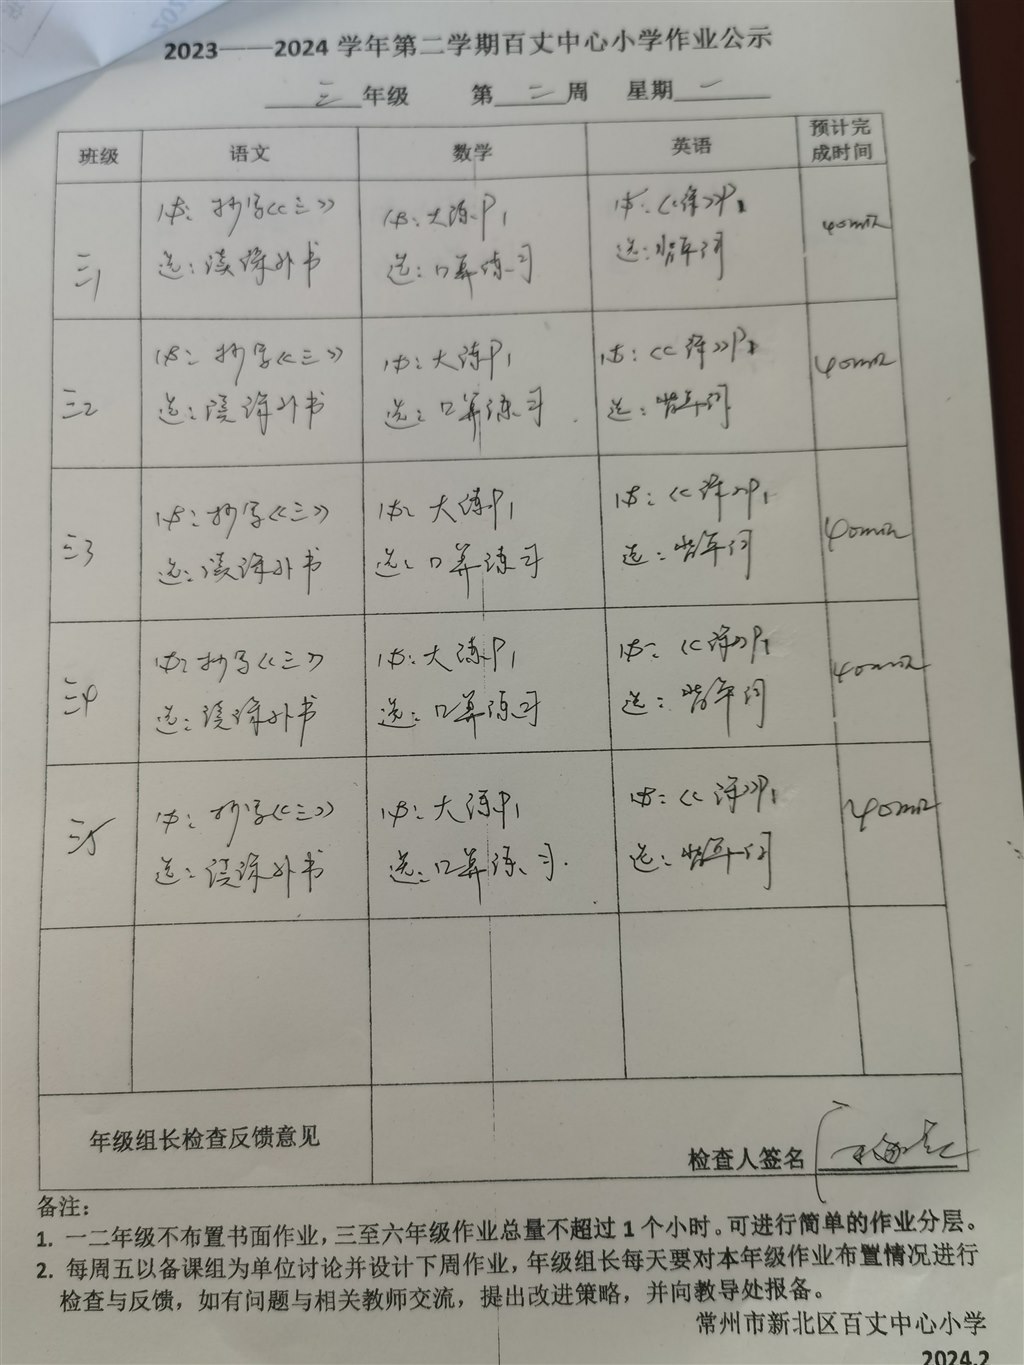 2023——2024 学年第二学期百丈中心小学作业公示
三 年级 第 二 周 星期 一
班级 语文 数学 英语 预计完成时间
三1 必：抄写《三》 必：大练P1 必：《课》P1 40min
选：读课外书 选：口算练习 选：背单词
三2 必：抄写《三》 必：大练P1 必：《课》P1 40min
选：读课外书 选：口算练习 选：背单词
三3 必：抄写《三》 必：大练P1 必：《课》P1 40min
选：读课外书 选：口算练习 选：背单词
三4 必：抄写《三》 必：大练P1 必：《课》P1 40min
选：读课外书 选：口算练习 选：背单词
三5 必：抄写《三》 必：大练P1 必：《课》P1 40min
选：读课外书 选：口算练习 选：背单词
年级组长检查反馈意见
检查人签名
备注：
1. 一二年级不布置书面作业，三至六年级作业总量不超过 1 个小时。可进行简单的作业分层。
2. 每周五以备课组为单位讨论并设计下周作业，年级组长每天要对本年级作业布置情况进行
检查与反馈，如有问题与相关教师交流，提出改进策略，并向教导处报备。
常州市新北区百丈中心小学
2024.2